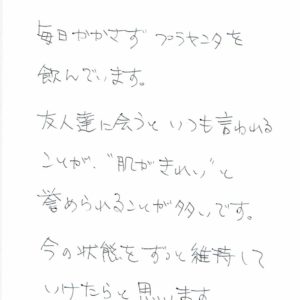 毎日かかさず プラセンタを
飲んでいます。
友人達に会うと いつも言われる
ことが、"肌がきれい"と
誉められることが多いです。
今の状態をずっと維持して
いけたらと思います